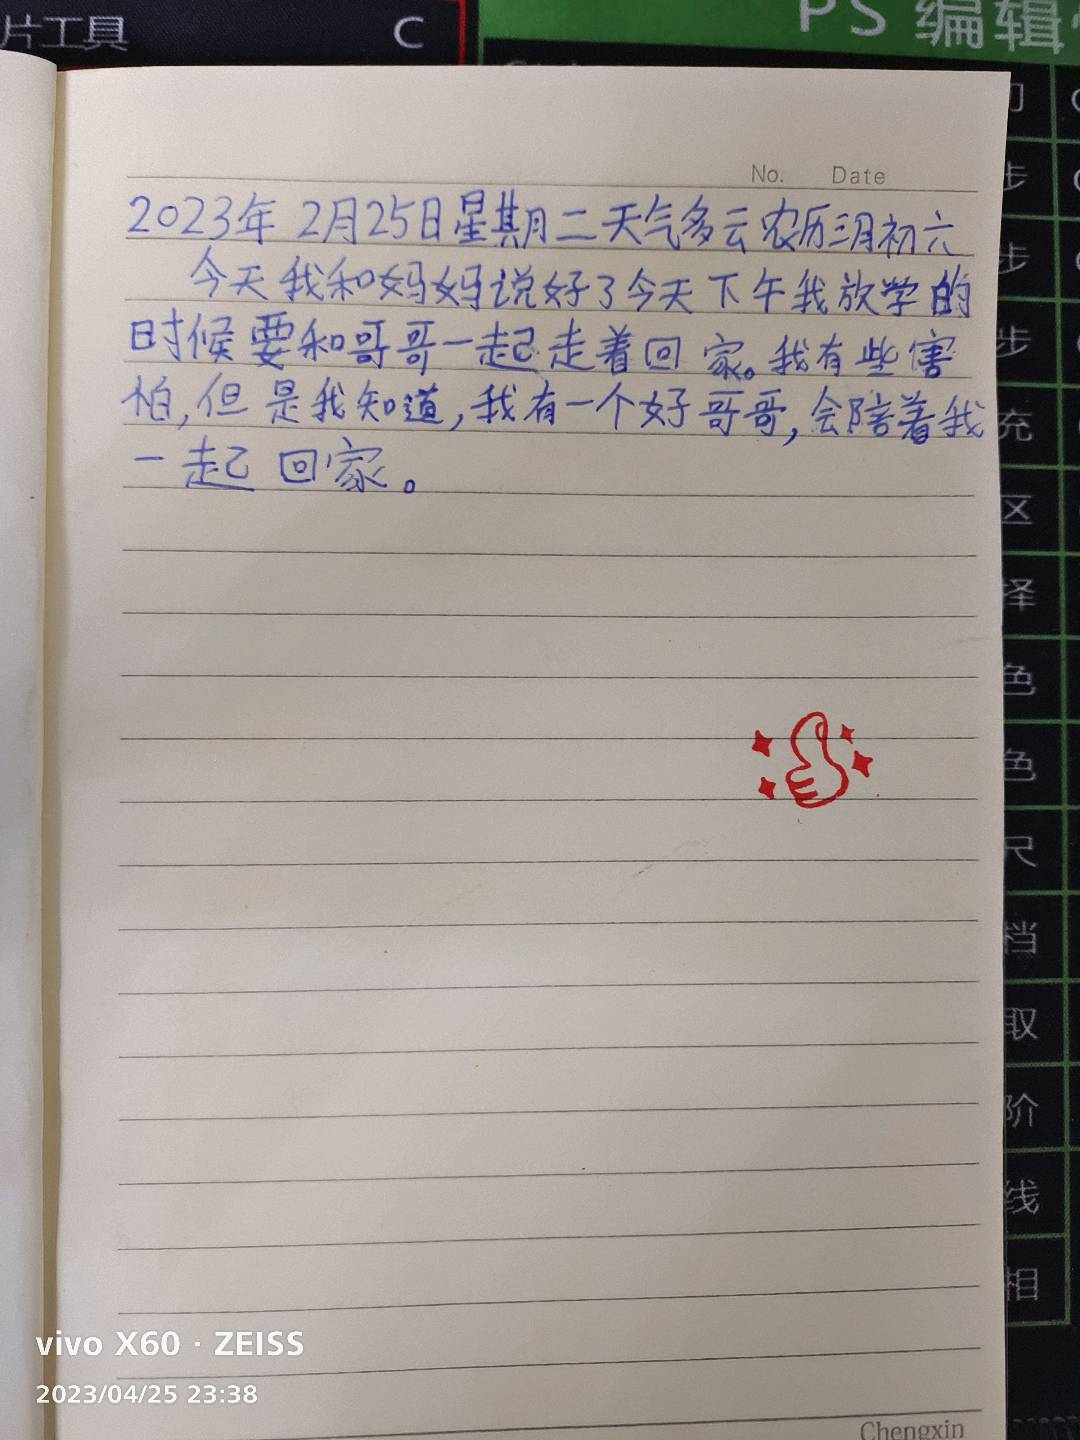 片工具 C
PS 编辑
No. Date
2023年 2月25日星期二天气多云农历三月初六
今天我和妈妈说好了今天下午我放学的
时候要和哥哥一起走着回家。我有些害
怕,但是我知道,我有一个好哥哥,会陪着我
一起回家。
步
步
步
充
区
择
色
色
尺
档
取
阶
线
相
vivo X60 · ZEISS
2023/04/25 23:38
Chengxin